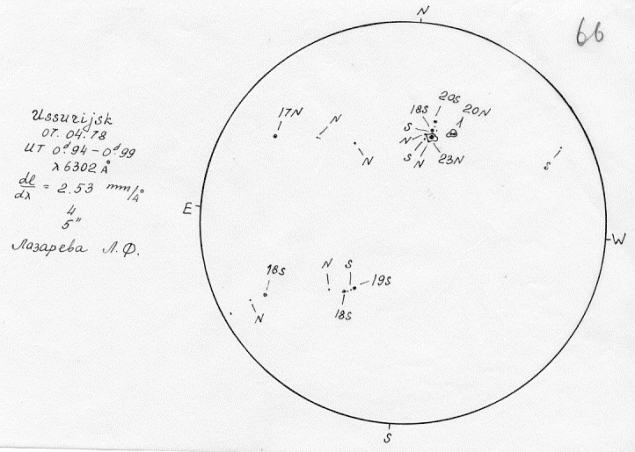 66
Ussurijsk
07. 04. 78
UT 0.ᵈ94 – 0.ᵈ99
λ 6302 Å
dl/dλ = 2.53 mm/Å
4
5"
Лазарева Л.Ф.
N
20S
18S
20N
S
N
S
N
23N
17N
N
N
S
E
W
18S
N
N
S
19S
18S
S